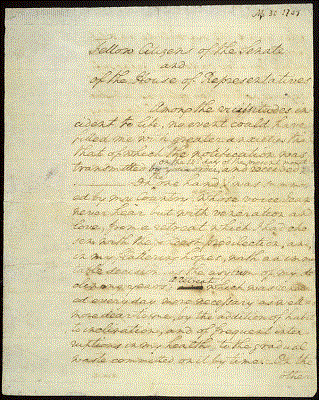 Ap. 30. 1789
Fellow Citizens of the Senate
and
of the House of Representatives
Among the vicissitudes in
cident to life, no event could have
filled me with greater anxieties than
that of which the notification was
transmitted by your order, and received
on the 14th day of the present month
On the one hand, I was summon
ed by my Country, whose voice I can
never hear but with veneration and
love, from a retreat which I had cho
sen with the fondest predilection, and,
in my flattering hopes, with an immu
table decision as the asylum of my de
clining years: a retreat which was render
ed every day more necessary as well as
more dear to me, by the addition of habit
to inclination, and of frequent inter
ruptions in my health to the gradual
waste committed on it by time. On the
other